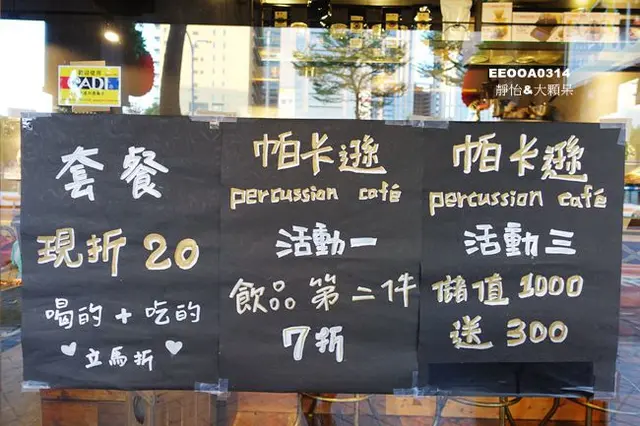 EEOOA0314
靜怡&大顆呆
歡迎使用
套餐
現折 20
喝的 + 吃的
立馬折
帕卡遜
percussian café
活動一
飲品 第二件
7折
帕卡遜
percussian café
活動三
儲值 1000
送 300